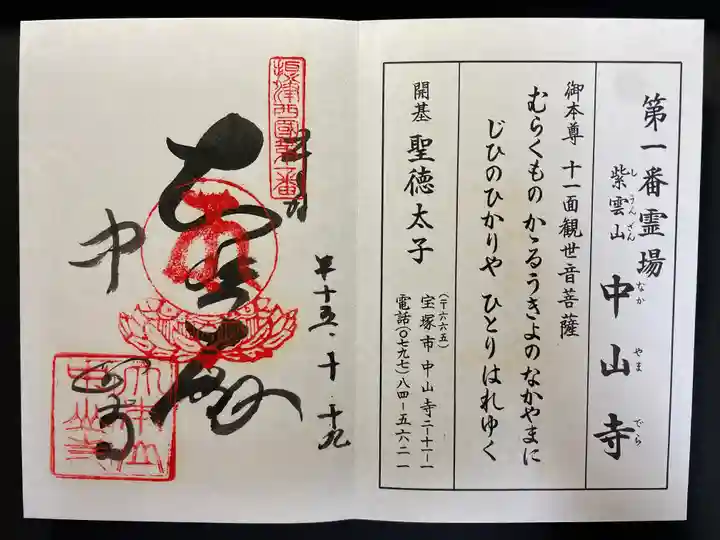 第一番霊場
紫雲山 中山寺
しうんざん なかやまでら
御本尊 十一面観世音菩薩
むらくもの かゝるうきよのなかやまに
じひのひかりや ひとりはれゆく
開基 聖徳太子
(〒六六五)
宝塚市中山寺二-十一-一
電話(〇七九七)八四-五一六二
摂津西国第一番
平十五・十・十九
中
山寺